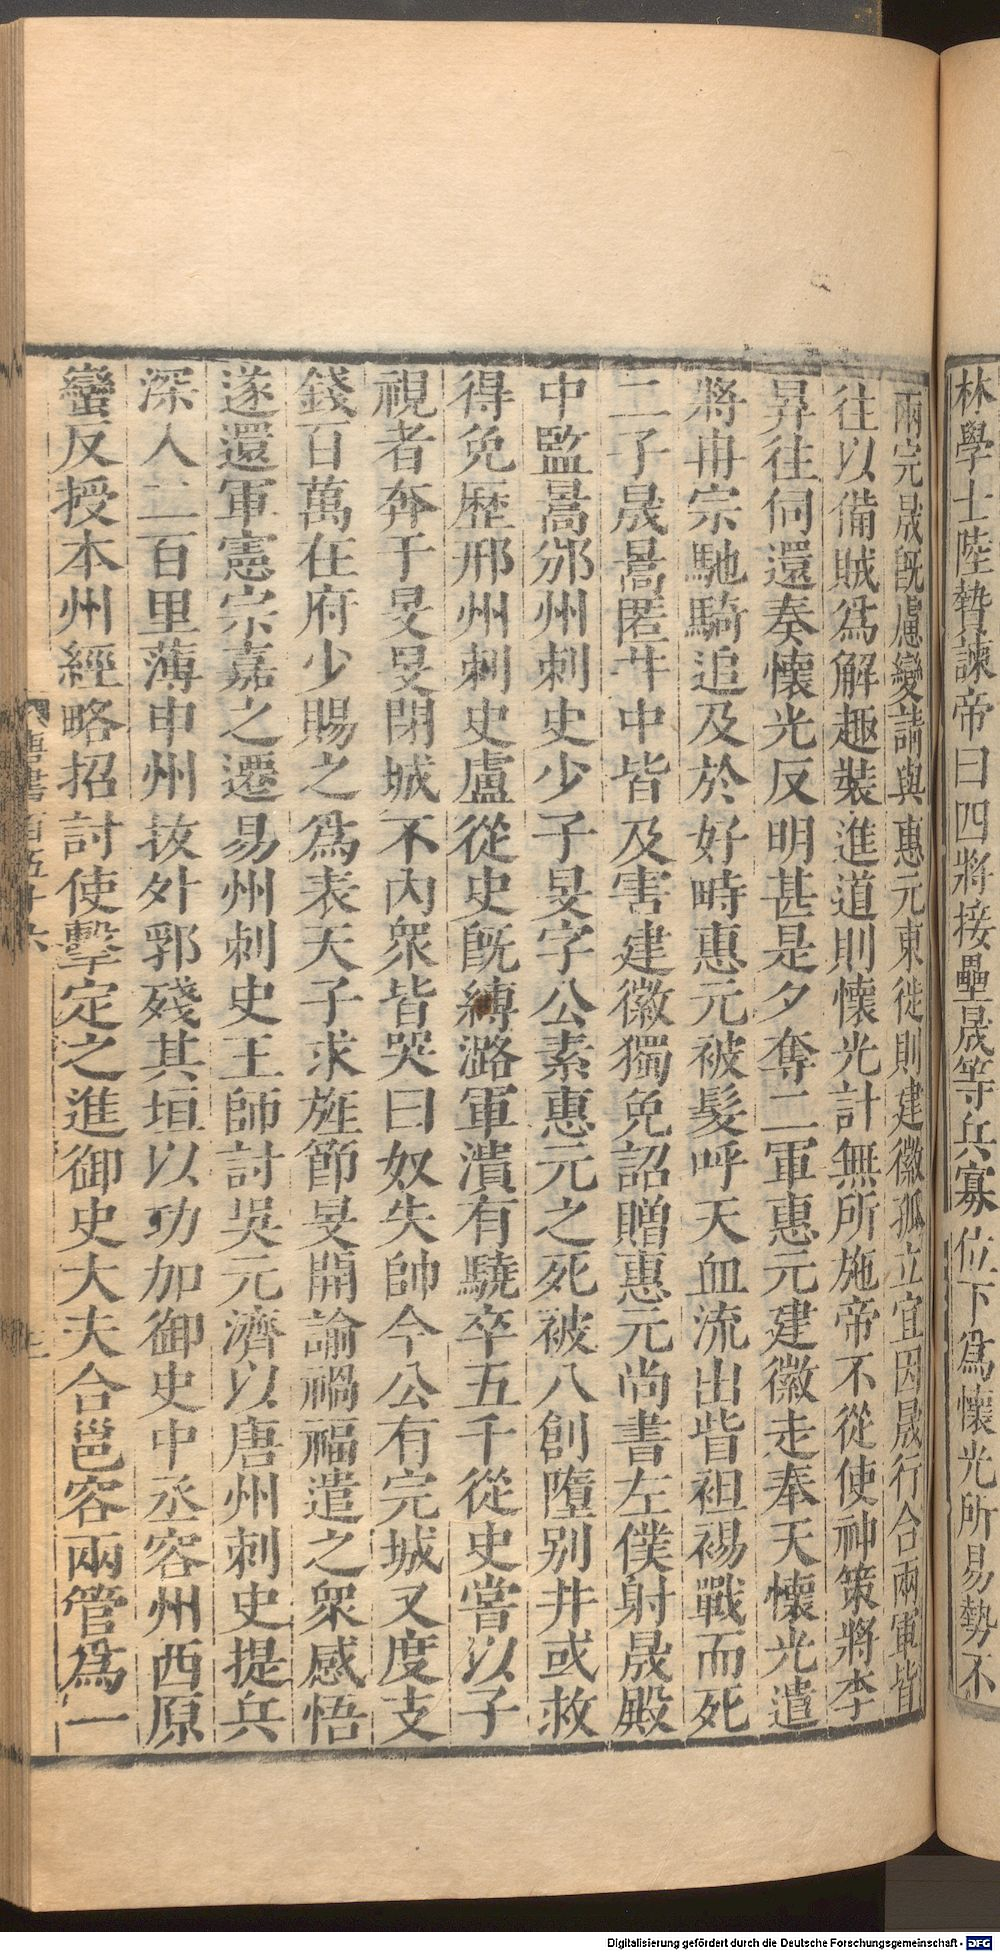 林學士陸贄諫帝曰四將接壘晟等兵寡位下爲懷光所易勢不
兩完晟旣慮變請與惠元東徙則建徽孤立宜因晟行合兩軍皆
往以備賊爲解趣裝進道則懷光計無所施帝不從使神策將李
昇往伺還奏懷光反明甚是夕奪二軍惠元建徽走奉天懷光遣
將冉宗馳騎追及於好畤惠元被髮呼天血流出眥袒裼戰而死
二子晟暠匿井中皆及害建徽獨免詔贈惠元尚書左僕射晟殿
中監暠邠州刺史少子旻字公素惠元之死被八創墮別井或救
得免歷邢州刺史盧從史旣縛潞軍潰有驍卒五千從史嘗以子
視者奔于旻旻閉城不內衆皆哭曰奴失帥今公有完城又度支
錢百萬在府少賜之爲表天子求旌節旻開諭禍福遣之衆感悟
遂還軍憲宗嘉之遷易州刺史王師討吳元濟以唐州刺史提兵
深入二百里薄申州拔外郛殘其垣以功加御史中丞容州西原
蠻反授本州經略招討使擊定之進御史大夫合邕容兩管爲一
唐書百五十六
Digitalisierung gefördert durch die Deutsche Forschungsgemeinschaft - DFG